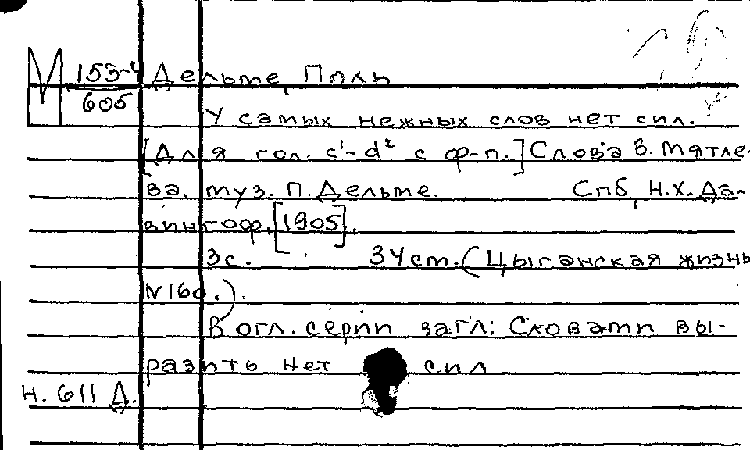 М 153-4/605 Дельме, Поль
У самых нежных слов нет сил.
[Для гол. c¹-d² с ф-п.] Слова В. Мятле-
ва, муз. П. Дельме. Спб, Н.Х. Да-
вингоф, [1905].
3с. 34 см. (Цыганская жизнь
№ 160.).
В огл. серии загл: Словами вы-
разить нет сил
Н. 611 Д.